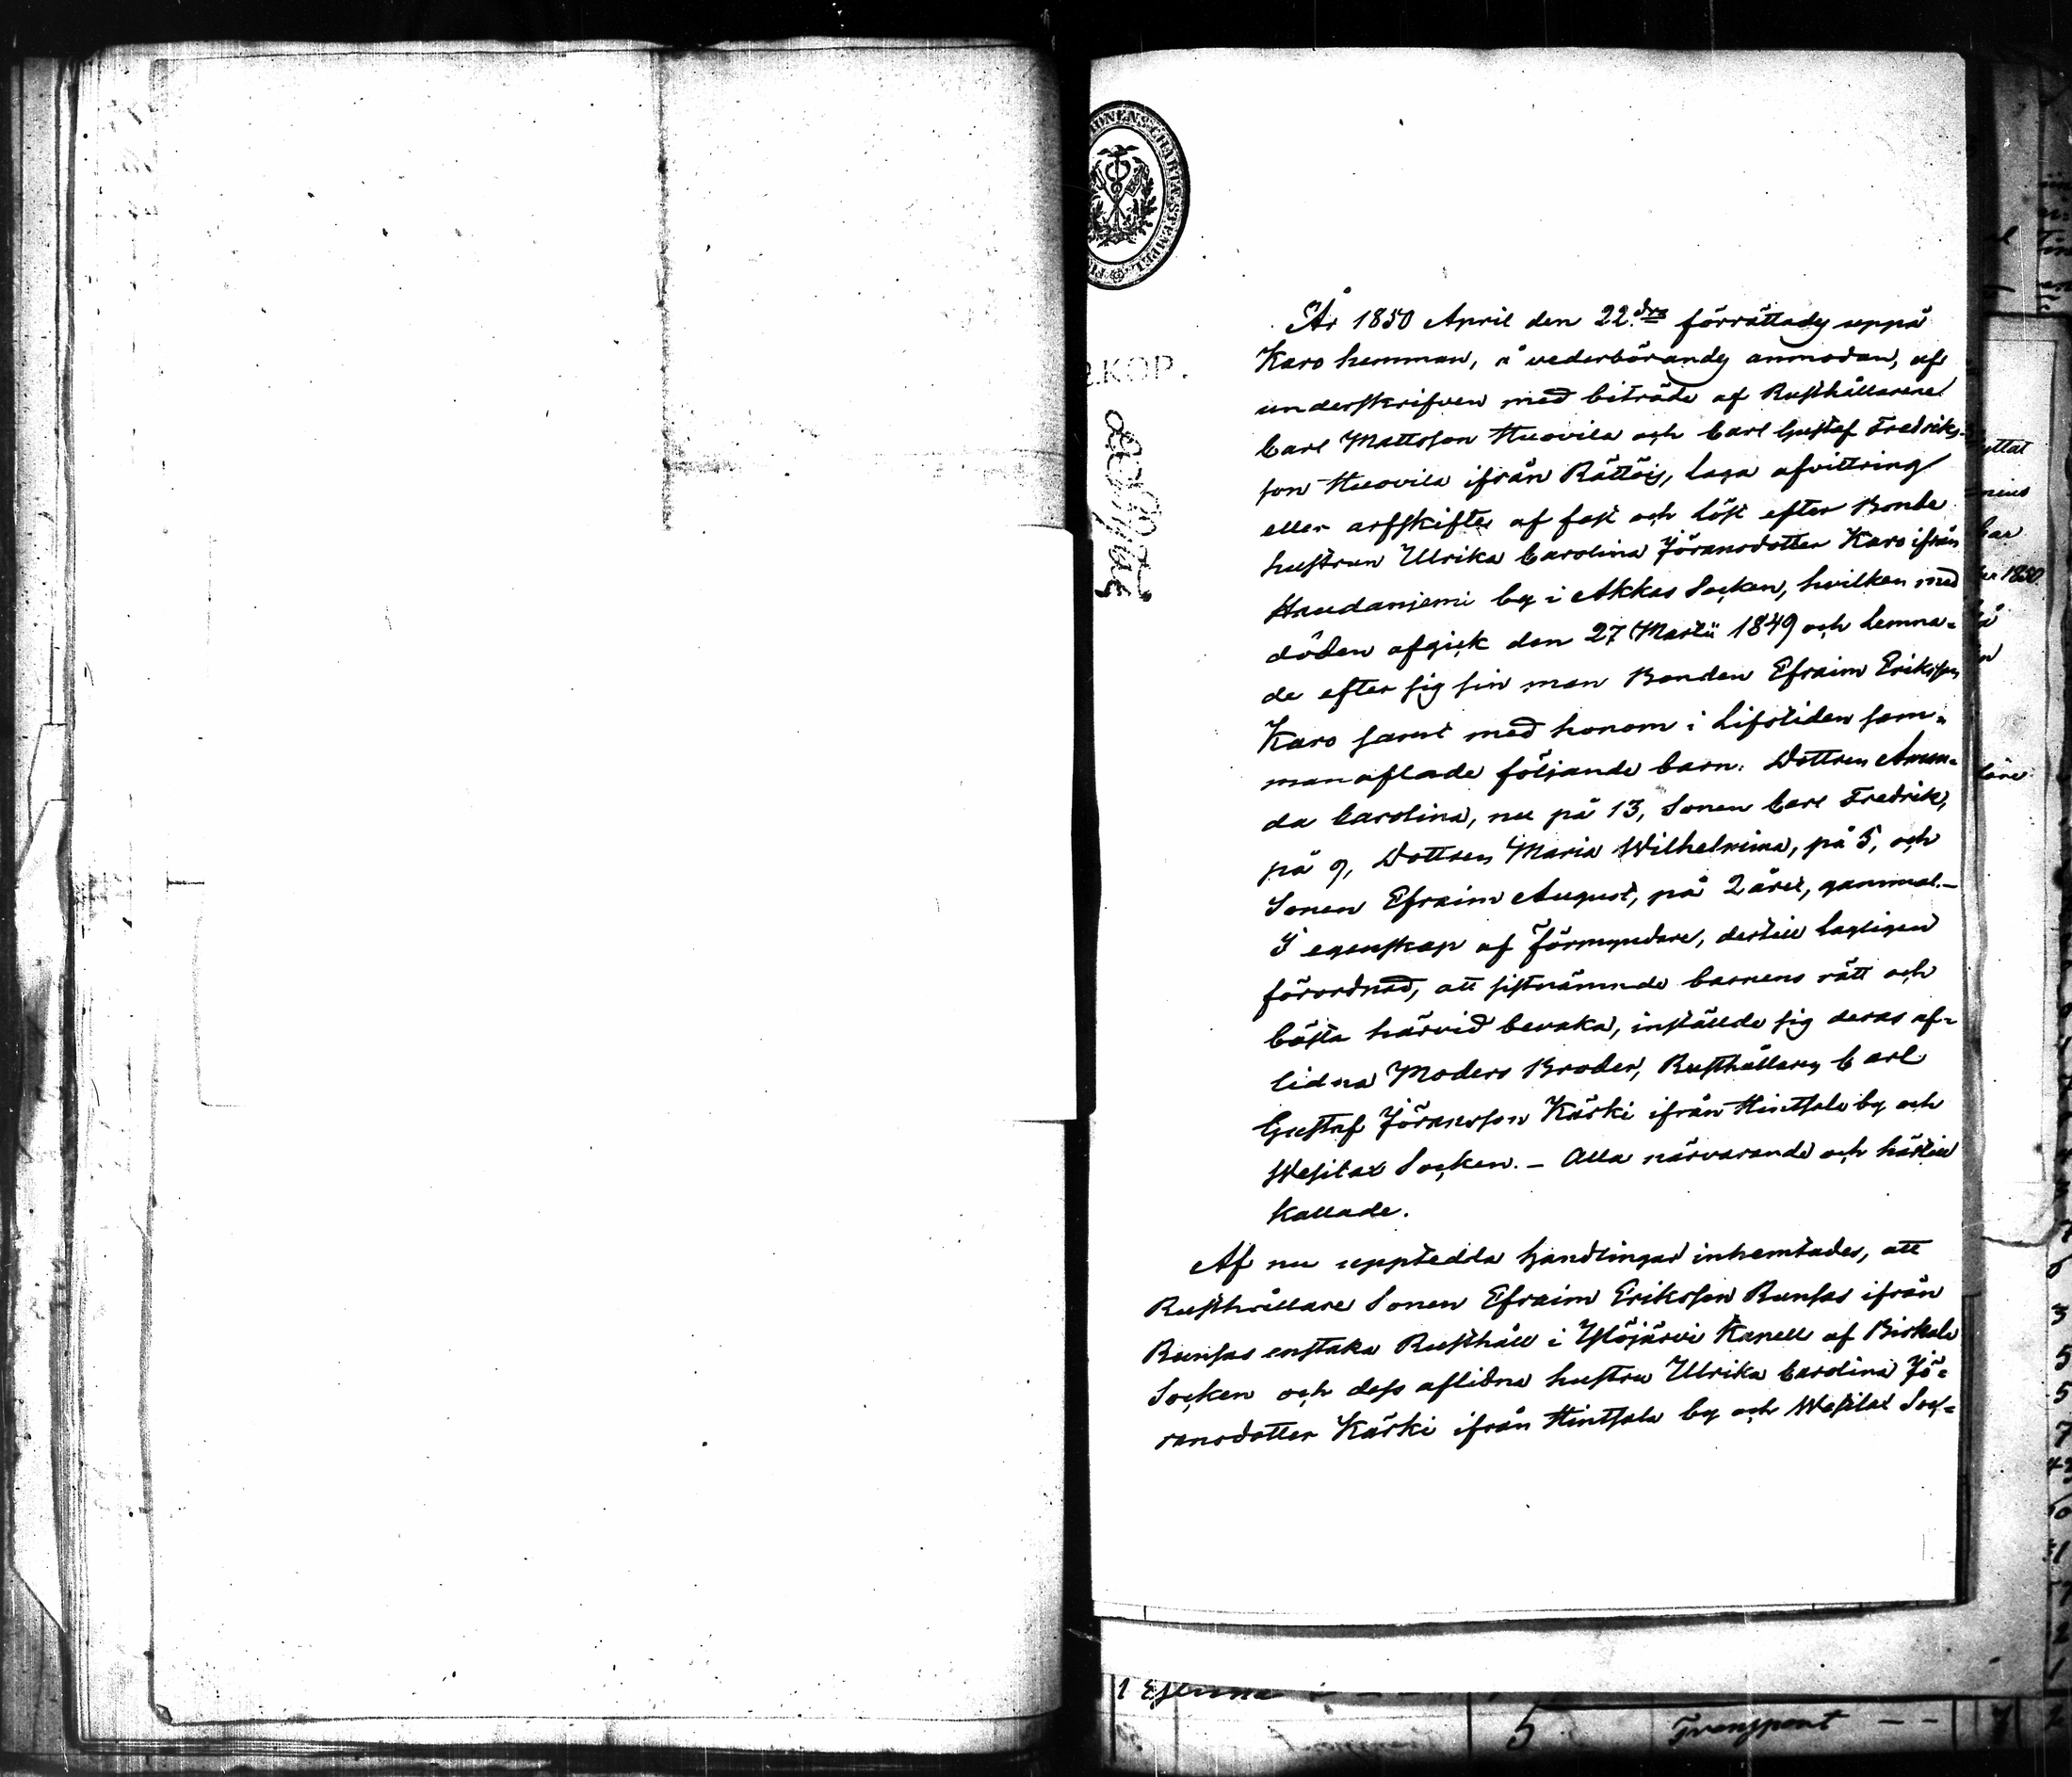 År 1850 April den 22dra förrättades uppå
Karo hemman, å vederbörandes anmodan, af
underskrifven med biträde af Rusthållarene
Carl Mattsson Huovila och Carl Gustaf Fredriks-
son Huovila ifrån Rättöis, laga afvittring
eller arfskifte af fast och löst efter Bonde
hustrun Ulrika Carolina Jöransdotter Karo ifrån
Haudaniemi by i Akkas Socken, hvilken med
döden afgick den 27 Martii 1849 och lemna-
de efter sig sin man Bonden Efraim Eriksson
Karo samt med honom i lifstiden sam-
manaflade följande barn: Dottren Aman-
da Carolina, nu på 13, Sonen Carl Fredrik,
på 9, Dottren Maria Wilhelmina, på 5, och
Sonen Efraim August, på 2 året, gammal.-
I egenskap af Förmyndare, dertill lagligen
förordnad, att sistnämnde barnens rätt och
bästa härvid bevaka, inställde sig deras af-
lidna Moders Broder, Rusthållaren Carl
Gustaf Jöransson Kärki ifrån Hintsala by och
Wesilax Socken. - Alla närvarande och härtill
kallade.
Af nu upptedda handlingar inhemtades, att
Rusthållare Sonen Efraim Eriksson Runsas ifrån
Runsas enstaka Rusthåll i Ylöjärvi Kapell af Birkala
Socken och dess aflidna hustru Ulrika Carolina Jö-
ransdotter Kärki ifrån Hintsala by och Wesilax Soc-
KOP.
STEMPEL
1850
5 Transport - -